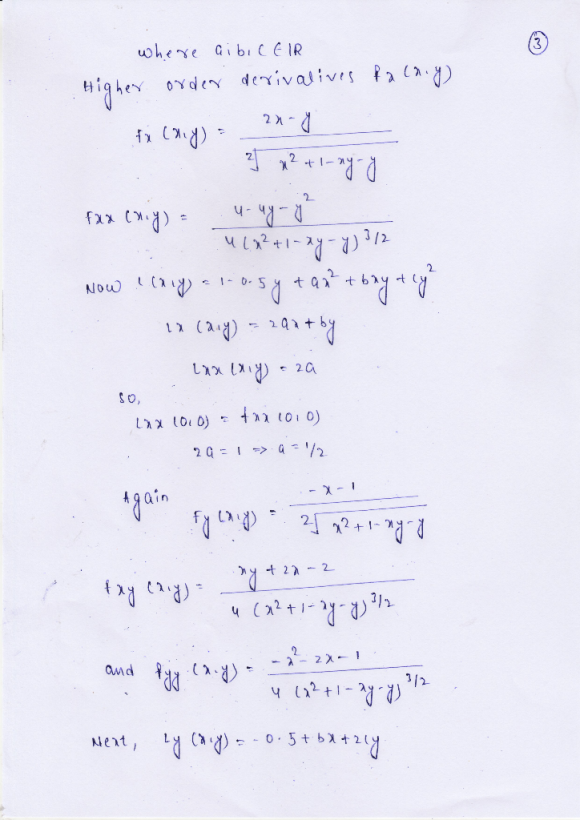 ③
where a,b,c ∈ IR
Higher order derivatives fx (x,y)
fx (x,y) = (2x - y) / (2√(x² + 1 - xy - y))
fxx (x,y) = (4 - 4y - y²) / (4 (x² + 1 - xy - y)^3/2)
Now L(x,y) = 1 - 0.5y + ax² + bxy + cy²
Lx (x,y) = 2ax + by
Lxx (x,y) = 2a
so,
Lxx (0,0) = fxx (0,0)
2a = 1 => a = 1/2
Again fy (x,y) = (-x - 1) / (2√(x² + 1 - xy - y))
fxy (x,y) = (xy + 2x - 2) / (4 (x² + 1 - xy - y)^3/2)
and fyy (x,y) = (-x² - 2x - 1) / (4 (x² + 1 - xy - y)^3/2)
Next, Ly (x,y) = -0.5 + bx + 2cy